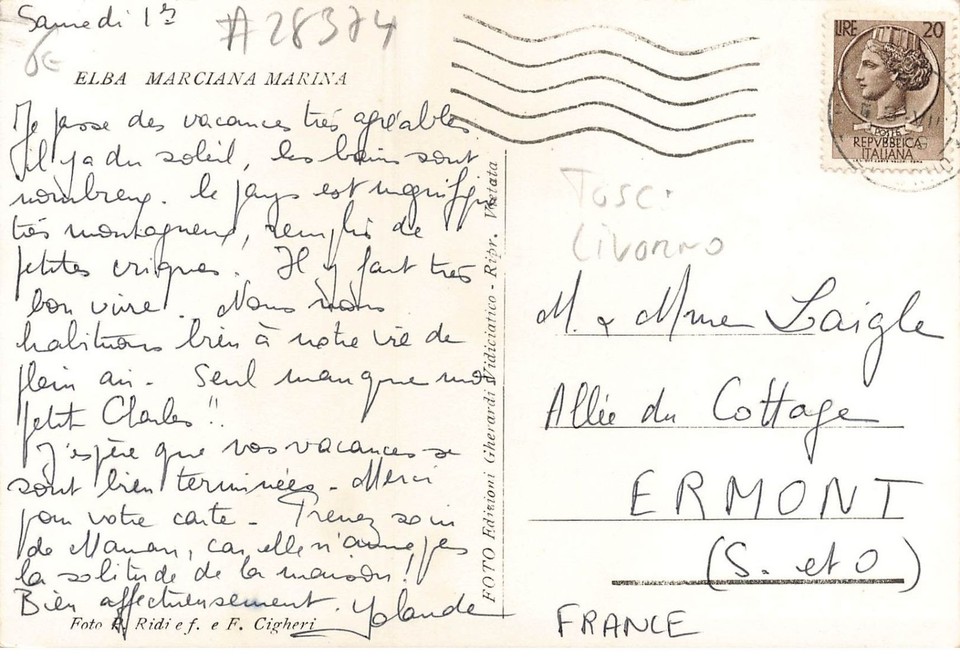 Samedi 1er
#28374
6€
ELBA MARCIANA MARINA
Je passe des vacances très agréables.
il y a du soleil, les bains sont
nombreux. le pays est magnifique
très montagneux, remplis de
petites criques. Il y fait très
bon vivre. Nous nous
habituons bien à notre vie de
plein air. Seul manque mon
petit Charles !!
J'espère que vos vacances se
sont bien terminées. Merci
pour votre carte. Prenez soin
de Maman, car elle n'aime pas
la solitude de la maison!
Bien affectueusement. Yolande
Foto R. Ridi e f. e F. Cigheri
FOTO Edizioni Gherardi Vidiciatico - Ripr. Vietata
LIRE 20
POSTE
REPVBBLICA
ITALIANA
Tosc.
Livorno
M. & Mme Laigle
Allée du Cottage
ERMONT
(S. et O)
FRANCE